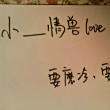 小__情兽love
要廉冷、要